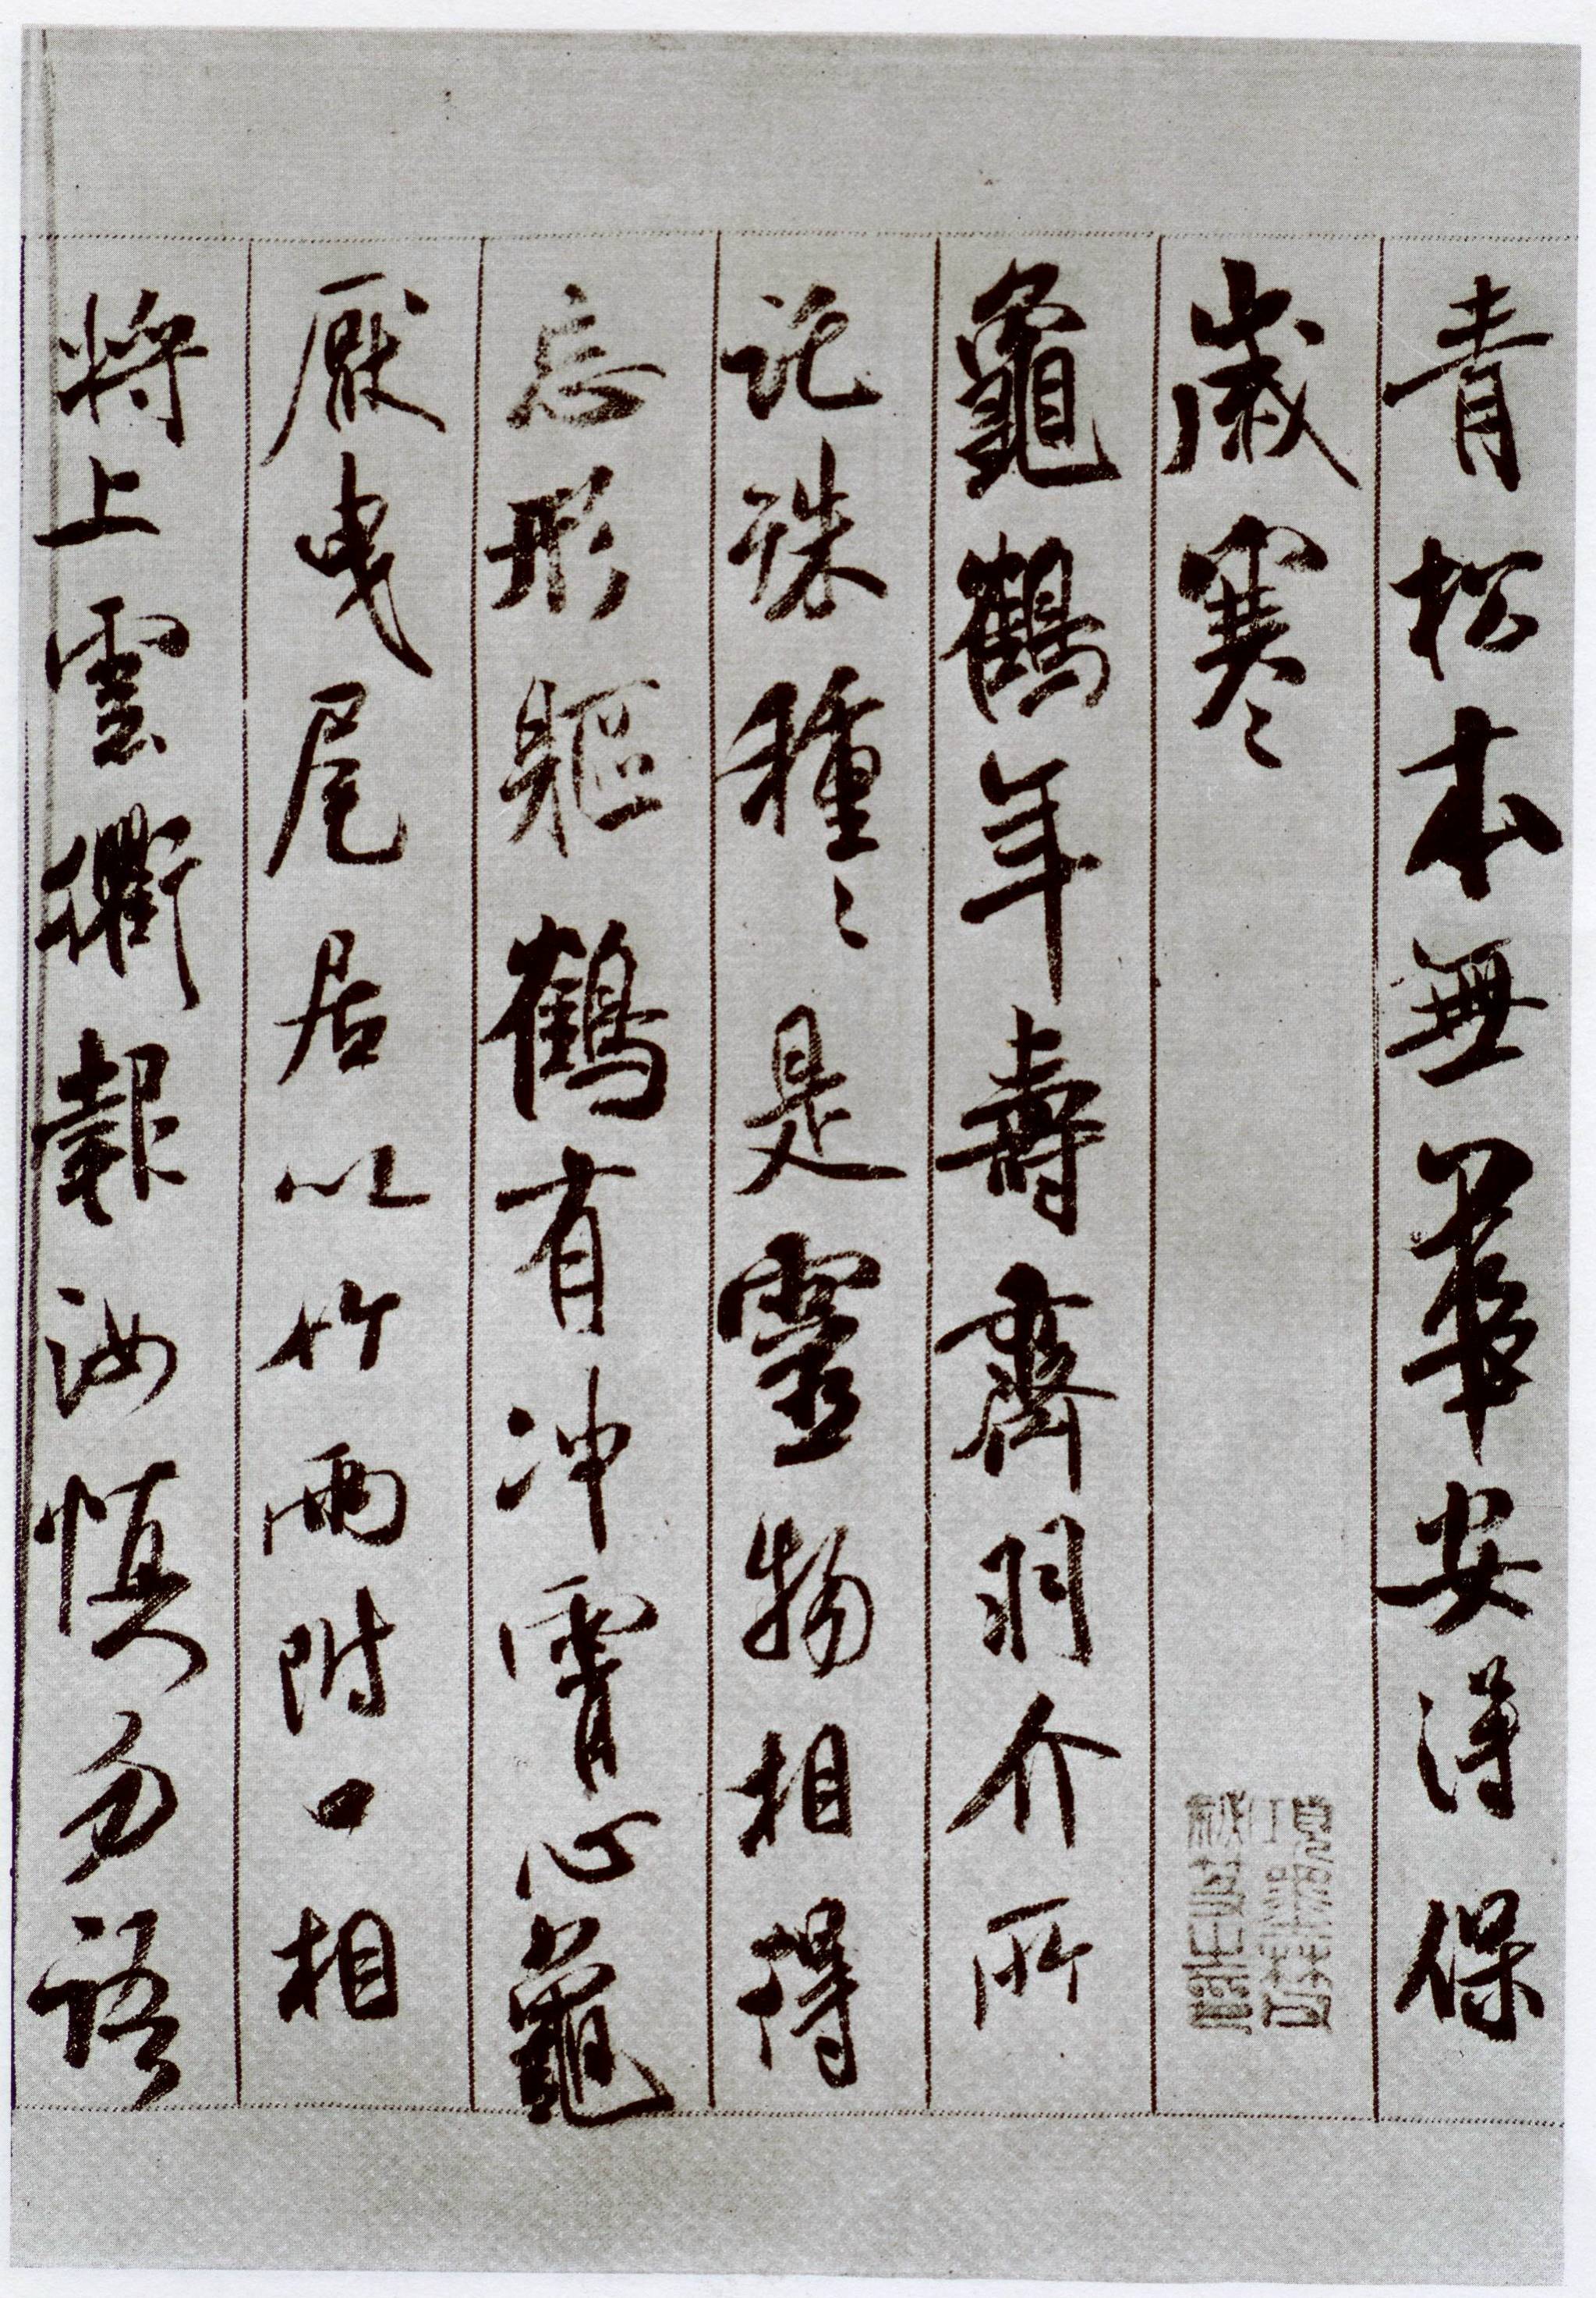 青松本無華安得保
歲寒
龜鶴年壽齊羽介所
託殊種種是靈物相得
忘形軀鶴有冲霄心龜
厭曳尾居以竹兩附口相
將上雲衢報汝慎勿語